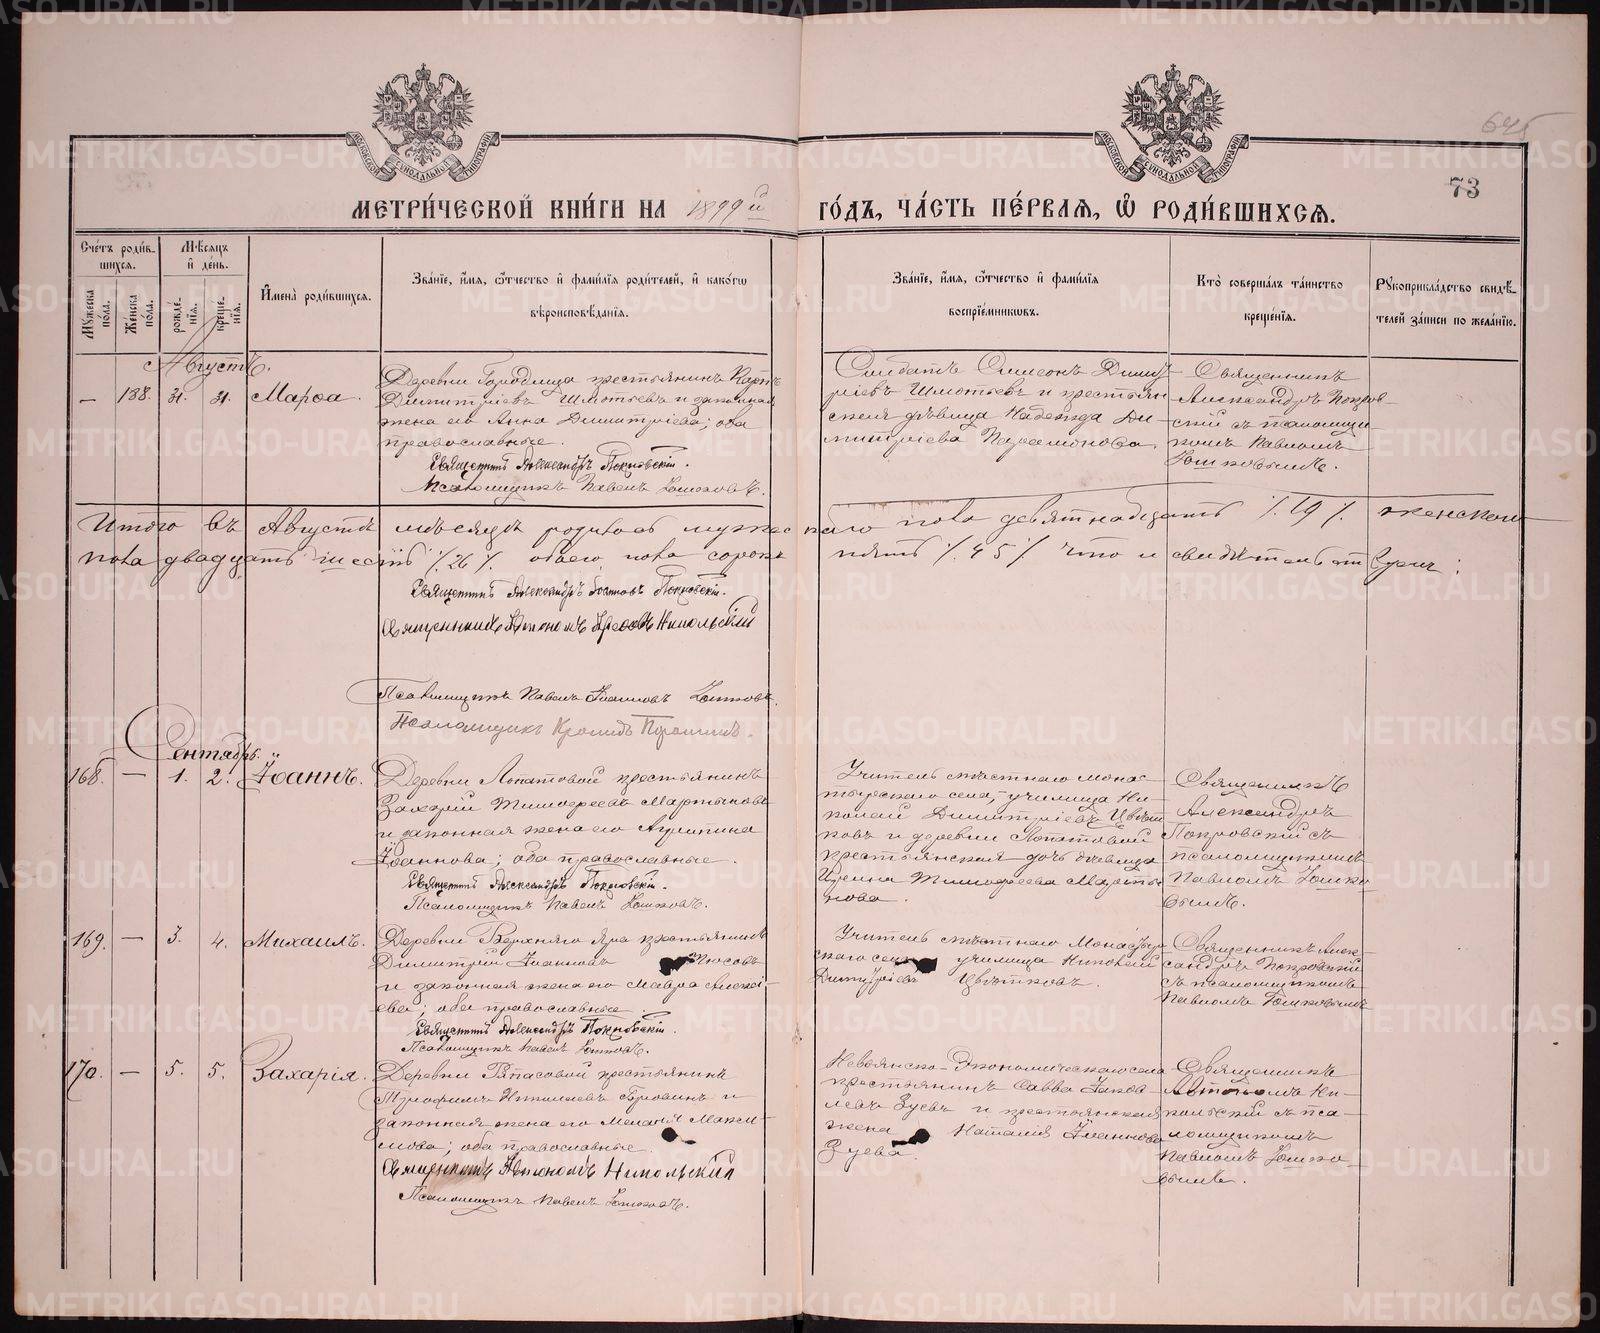 МЕТРИ́ЧЕСКОЙ КНИ́ГИ НА 1899 й ГО́ДЪ, ЧА́СТЬ ПЕ́РВАЯ, Ѡ РОДИ́ВШИХСЯ.
73
Сче́тъ роди́в-
шихся.
Мѣ́сяцъ
и҆ де́нь.
Му́жеска
по́ла.
Же́нска
по́ла.
рожде́-
нїя.
креще́-
нїя.
И҆мена̀ роди́вшихся.
Зва́нїе, и҆́мя, ѻ҆́тчество и҆ фами́лїя роди́телей, и҆ како́гѡ
вѣроисповѣ́данїя.
Зва́нїе, и҆́мя, ѻ҆́тчество и҆ фами́лїя
воспрїе́мниковъ.
Кто̀ соверша́лъ та́инство
креще́нїя.
Рꙋкоприкла́дство свидѣ́-
телей за́писи по жела́нїю.
Августъ.
—
138.
31.
31.
Марѳа.
Деревни Городища крестьянинъ Карпъ
Димитріевъ Шмотьевъ и законная
жена его Анна Димитріева; оба
православные.
Священникъ Александръ Покровскій.
Псаломщикъ Павелъ Юшковъ.
Солдатъ Симеонъ Димит-
ріевъ Шмотьевъ и крестьян-
ская дѣвица Надежда Ди-
митріева
Священникъ
Александръ Покров-
скій съ псаломщи-
комъ Павломъ
Юшковымъ.
Итого въ Августѣ мѣсяцѣ родилось мужескаго пола девятнадцать ./. 19 ./. женского
пола двадцать шесть ./. 26 ./. обоего пола сорокъ пять ./. 45 ./. что и свидѣтельствуемъ:
Священникъ Александръ Іоанновъ Покровскій.
Священникъ Автономъ Никольскій
Псаломщикъ Павелъ Іоанновъ Юшковъ.
Псаломщикъ Кронидъ Порошинъ.
Сентябрь.
168.
—
1.
2.
Іоаннъ.
Деревни Лопатовой крестьянинъ
Захарій Тимоѳеевъ Мартыновъ
и законная жена его Агрипина
Іоаннова; оба православные.
Священникъ Александръ Покровскій.
Псаломщикъ Павелъ Юшковъ.
Учитель мѣстнаго Мона-
стырскаго села, училища Ни-
колай Димитріевъ Цвѣт-
ковъ и деревни Лопатовой
крестьянская дочь дѣвица
Ирина Тимоѳеева Марты-
нова.
Священникъ
Александръ
Покровскій съ
псаломщикомъ
Павломъ Юшко-
вымъ.
169.
—
3.
4.
Михаилъ.
Деревни Верхняго Яра крестьянинъ
Димитрій Іоанновъ
и законная жена его Мавра Алексі-
ева; оба православные.
Священникъ Александръ Покровскій.
Псаломщикъ Павелъ Юшковъ.
Учитель мѣстнаго Монастыр-
скаго села училища Николай
Димитріевъ Цвѣтковъ.
Священникъ Алек-
сандръ Покровскій
съ псаломщикомъ
Павломъ Юшковымъ
170.
—
5.
5.
Захарія.
Деревни крестьянинъ
Трофимъ Николаевъ и
законная жена его Меланія Макси-
мова; оба православные.
Священникъ Автономъ Никольскій
Псаломщикъ Павелъ Юшковъ.
Невьянско-Экономическаго села
крестьянинъ Савва Іаков-
левъ Зуевъ и крестьянская
жена Наталія Іоаннова
Зуева.
Священникъ
Автономъ Ни-
кольскій съ пса-
ломщикомъ
Павломъ Юшко-
вымъ.